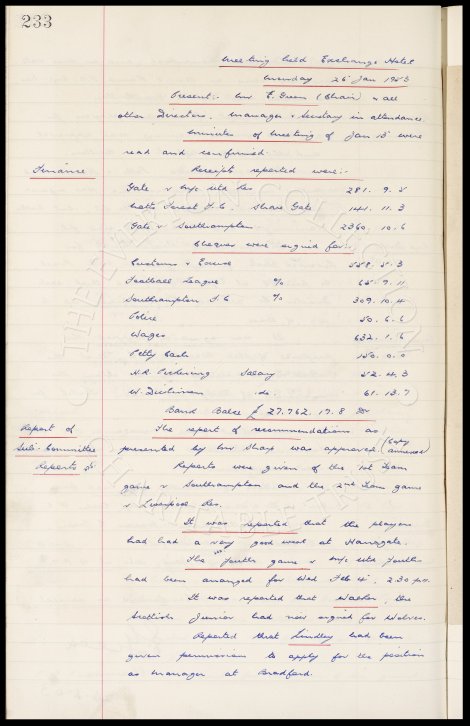 233
Meeting held Exchange Hotel
Monday 26 Jan 1953
Present:- Mr E. Green (Chair) & all
other Directors. Manager & Secretary in attendance.
Minutes of Meeting of Jan 13 were
read and confirmed.
Finance
Receipts reported were:-
Gate v M/c Utd Res 281. 9. 5
Notts Forest F.C Share Gate 141. 11. 3
Gate v Southampton 2360. 10. 6
Cheques were signed for:-
Customs & Excise 558. 5. 3
Football League % 65. 9. 11
Southampton F.C % 309. 10. 4
Police 50. 6. 6
Wages 632. 1. 6
Petty Cash 150. 0. 0
H.R. Pickering Salary 52. 4. 3
W. Dickinson do. 61. 13. 7
Bank Balce £ 27,762. 17. 8
Report of
Sub-Committee
Reports
The report of recommendations as
presented by Mr Sharp was approved. (Copy annexed)
Reports were given of the 1st Team
game v Southampton and the 2nd Team game
v Liverpool Res.
It was reported that the players
had had a very good week at Harrogate.
The Youth game v M/c Utd Youth
had been arranged for Wed Feb 4, 2.30 p.m.
It was reported that Walker, the
Scottish Junior had now signed for Wolves.
Reported that Lindley had been
given permission to apply for the position
as manager at Bradford.
THE EVERTON COLLECTION
CHARITABLE TRUST